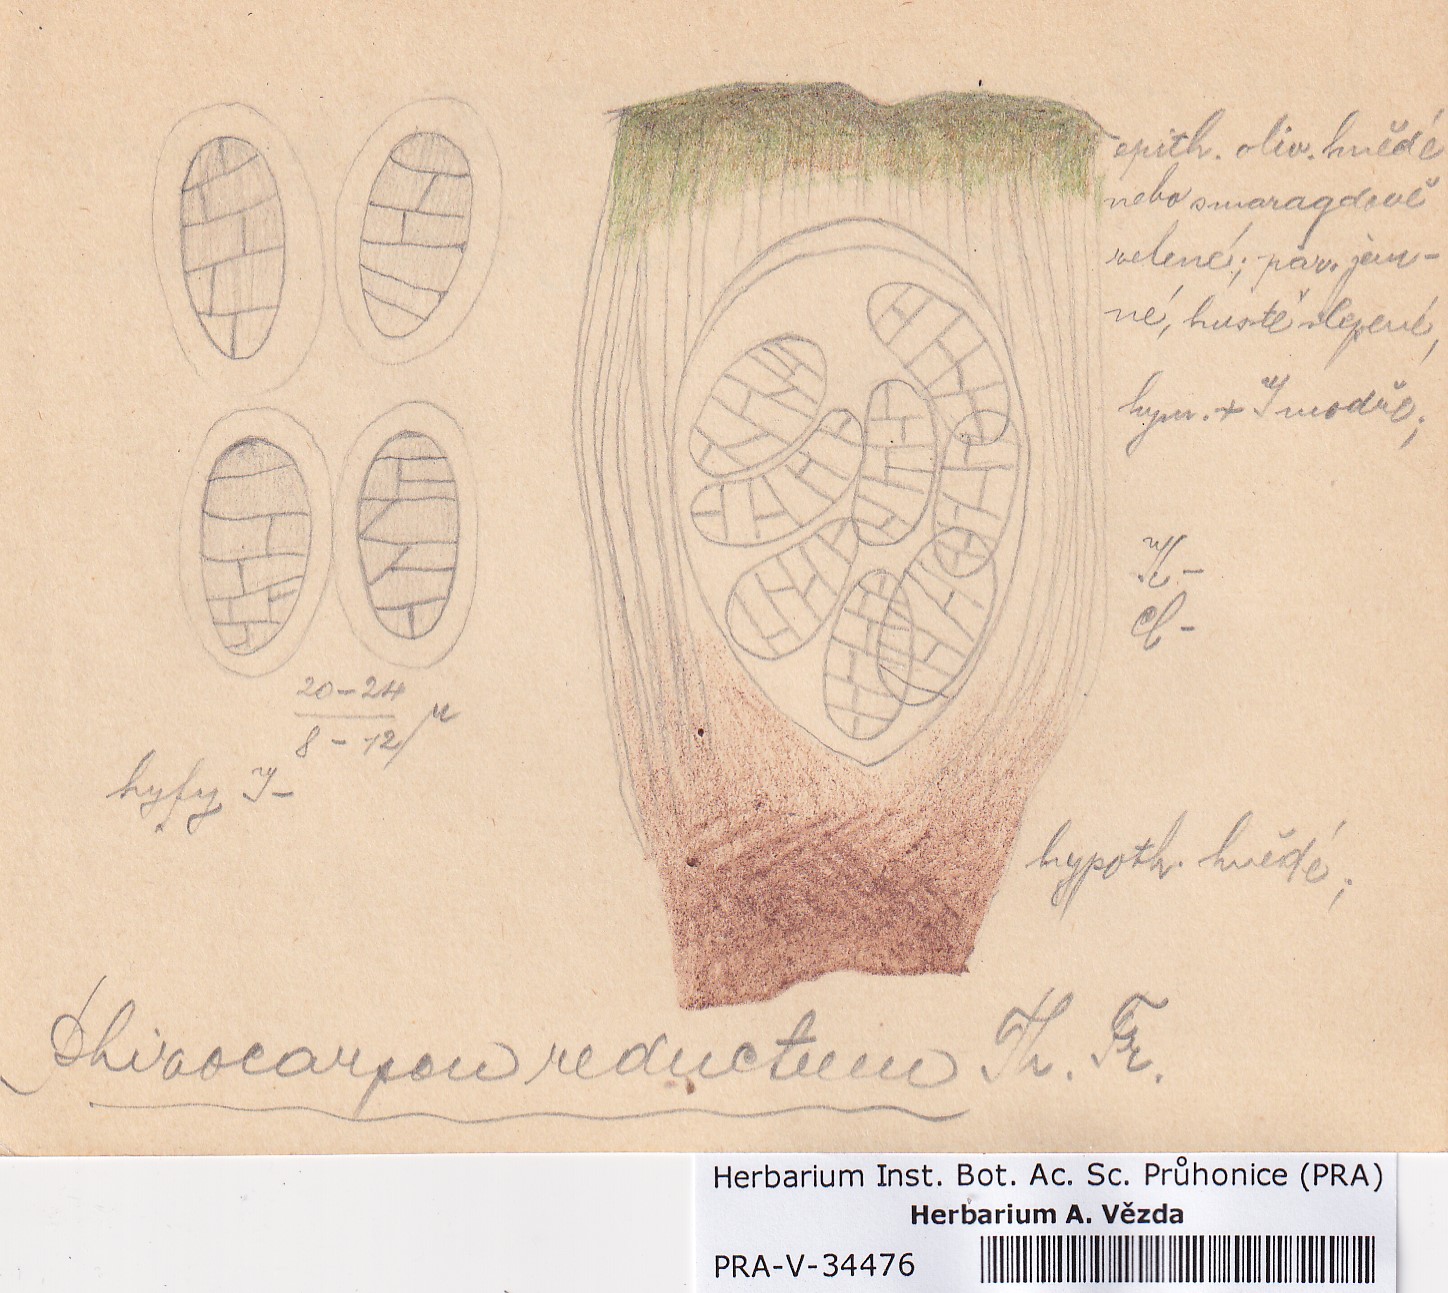 epith. oliv. hnědé
nebo smaragdově
zelené; par. jem-
né, hustě slepené,
hym. + J modře;
K -
Cl -
20-24
8-12/µ
hyfy J-
hypoth. hnědé;
Rhizocarpon reductum Th. Fr.
Herbarium Inst. Bot. Ac. Sc. Průhonice (PRA)
Herbarium A. Vězda
PRA-V-34476